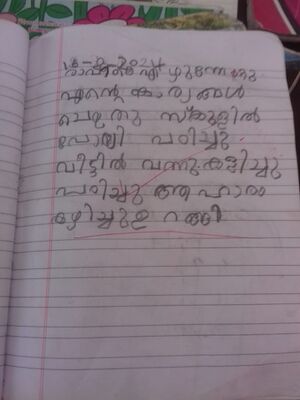 15-8-2024
രാവിലെ എഴുന്നേറ്റു
എന്റെ കാര്യങ്ങൾ
ചെയ്തു സ്കൂളിൽ
പോയി പഠിച്ചു.
വീട്ടിൽ വന്നു കളിച്ചു
പഠിച്ചു ആഹാരം
കഴിച്ചു ഉറങ്ങി